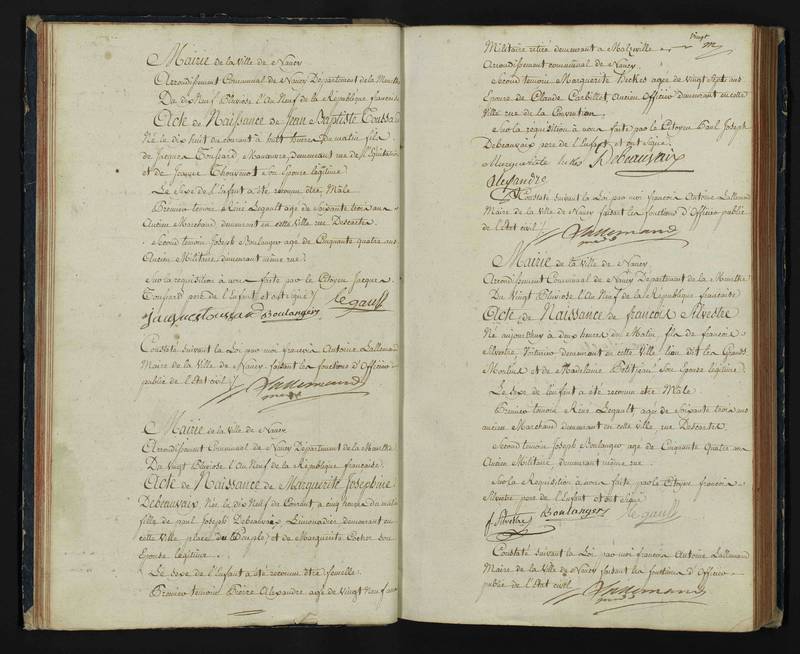 Mairie de la Ville de Nancy
Arrondissement Communal de Nancy Departement de la Meurthe
Du dix Neuf Pluviose l'An Neuf de la République française
Acte de Naissance de Jean Baptiste Toussaint
Né le dix huit du courant à huit heures du matin fils
de Jacques Toussard Manœuvre, demeurant rue de l'Equitation
et de Jeanne Thouvenot Son Epouse légitime
Le Sexe de l'Enfant a été reconnu être Male
Premier témoin René Legault agé de Soixante trois ans
Ancien Marchand, demeurant en cette Ville rue Descartes
Second temoin Joseph Boulanger age de Cinquante quatre ans
Ancien Militaire, demeurant même rue
Sur la requisition à nous faite par le Citoyen Jacques
Toussard père de l'Enfant et ont signé
Boulanger le gault
Constaté suivant la Loi par moi françois Antoine Lallemand
Maire de la Ville de Nancy faisant les fonctions d'Officier
public de l'Etat civil
Lallemand
Mairie de la Ville de Nancy
Arrondissement Communal de Nancy Département de la Meurthe
Du Vingt Pluviose l'An Neuf de la République française
Acte de Naissance de Marguerite Joséphine
Debeauvaix, Née le dix Neuf du Courant à cinq heures du matin
fille de paul Joseph Debeauvaix Limonadier demeurant en
cette Ville place du Peuple, et de Marguerite Cocher son
Epouse légitime
Le Sexe de l'Enfant a été reconnu être femelle
Premier temoin Pierre Alexandre age de Vingt Neuf ans
Vingt
Militaire retiré demeurant à Malzéville
Arrondissement communal de Nancy
Second temoin Marguerite agée de Vingt Sept ans
Epouse de Claude Carbillet, Ancien Officier demeurant en cette
Ville rue de la Convention
Sur la requisition à nous faite par le Citoyen Paul Joseph
Debeauvaix père de l'Enfant et ont signé
Marguerite Debeauvaix
Alexandre
Constaté suivant la Loi par moi françois Antoine Lallemand
Maire de la Ville de Nancy faisant les fonctions d'Officier public
de l'Etat civil
Lallemand
Mairie de la Ville de Nancy
Arrondissement Communal de Nancy Département de la Meurthe
Du Vingt Pluviose l'An Neuf de la République française
Acte de Naissance de françois Silvestre
Né aujourd'huy à deux heures du Matin, fils de françois
Silvestre, Voiturier demeurant en cette Ville lieu dit les Grands
Moulins et de Madelaine Petitjean Son Epouse légitime
Le Sexe de l'enfant a été reconnu etre Male
Premier temoin René Legault, agé de Soixante trois ans
ancien Marchand demeurant en cette ville, rue Descartes
Second temoin Joseph Boulanger age de Cinquante Quatre ans
Ancien Militaire, demeurant même rue
Sur la Requisition à nous faite par le Citoyen françois
Silvestre père de l'Enfant et ont signé
f Silvestre Boulanger le gault
Constaté suivant la Loi par moi françois Antoine Lallemand
Maire de la Ville de Nancy faisant les fonctions d'Officier
public de l'Etat civil
Lallemand